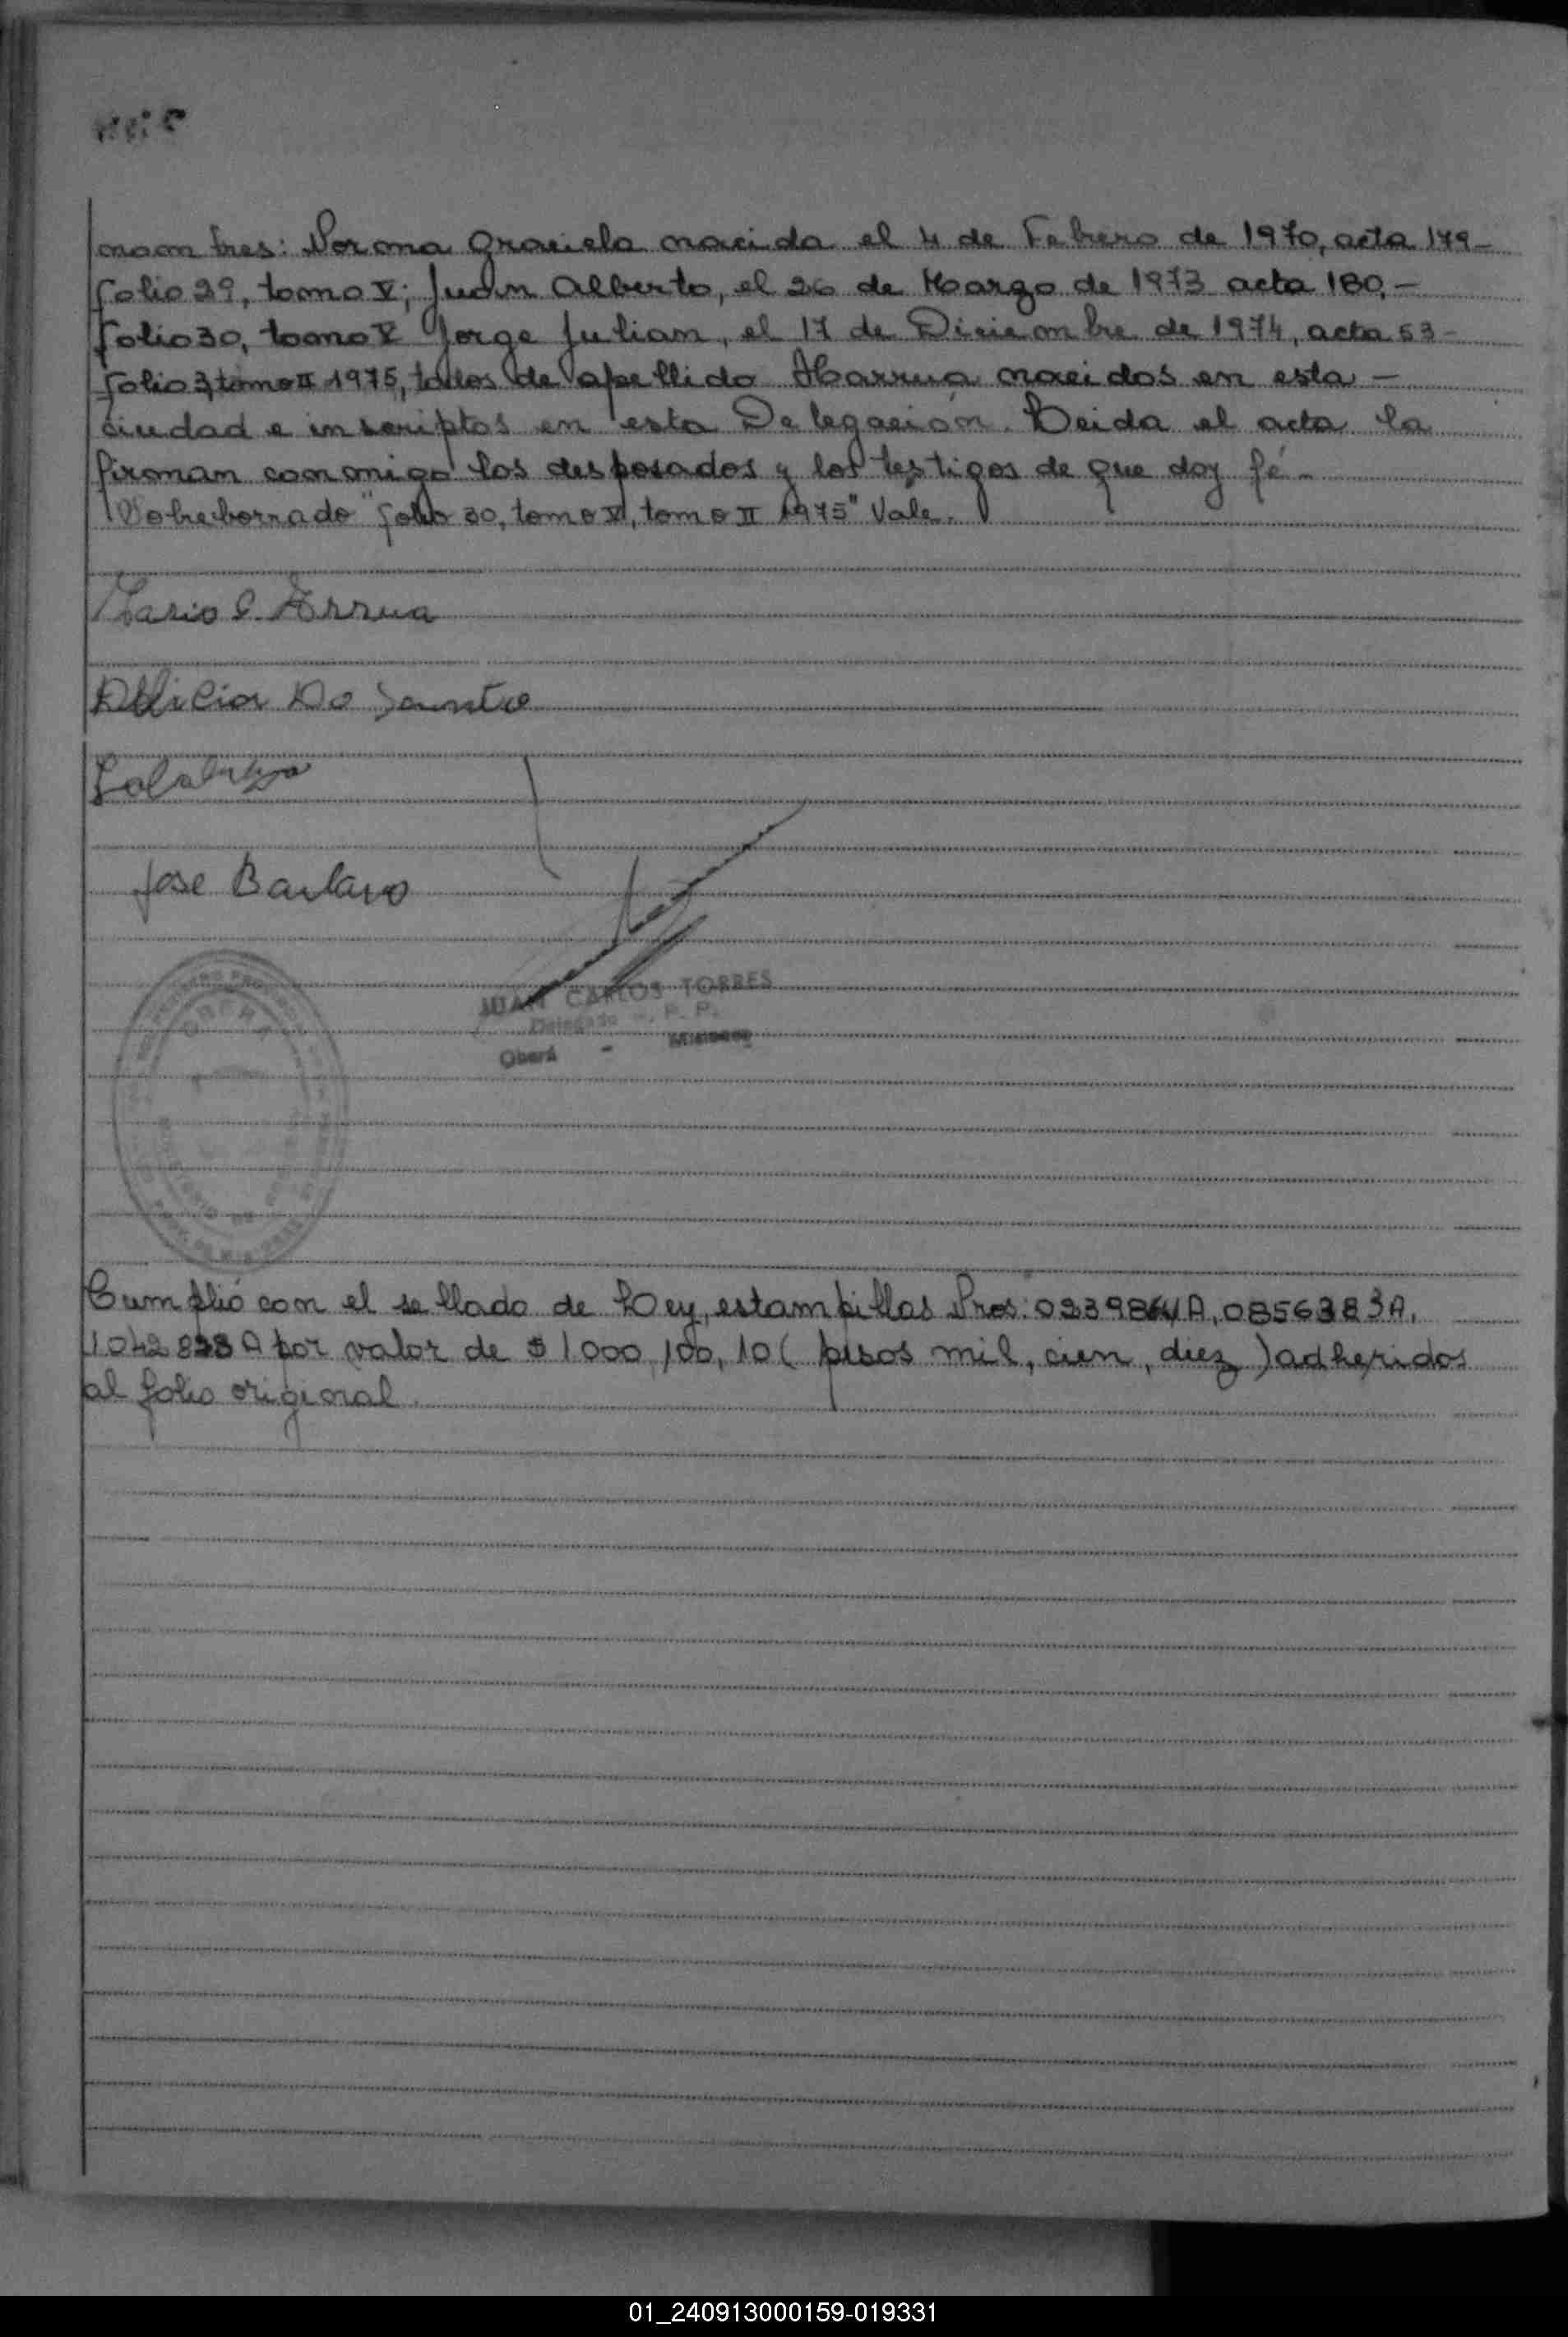 nom bres: Norma Graciela nacida el 4 de Febrero de 1970, acta 179-
folio 29, tomo V; Juan Alberto, el 26 de Marzo de 1973 acta 180,-
folio 30, tomo V Jorge Julian, el 17 de Diciembre de 1974, acta 53-
folio 3, tomo II 1975, todos de apellido nacidos en esta -
ciudad e inscriptos en esta Delegación. Leida el acta la
firman conmigo los desposados y los testigos de que doy fé.-
Sobreborrado "folio 30, tomo V, tomo II 1975" Vale.
Mario Arrua
Do
Jose
JUAN CARLOS TORRES
Delegado R. P. P.
Oberá - Misiones
OBERA
Cumplió con el sellado de Ley, estampillas Nros: 0856383A,
por valor de $ 1000, 100, 10 ( pesos mil, cien, diez ) adheridos
al folio original.
01_240913000159-019331